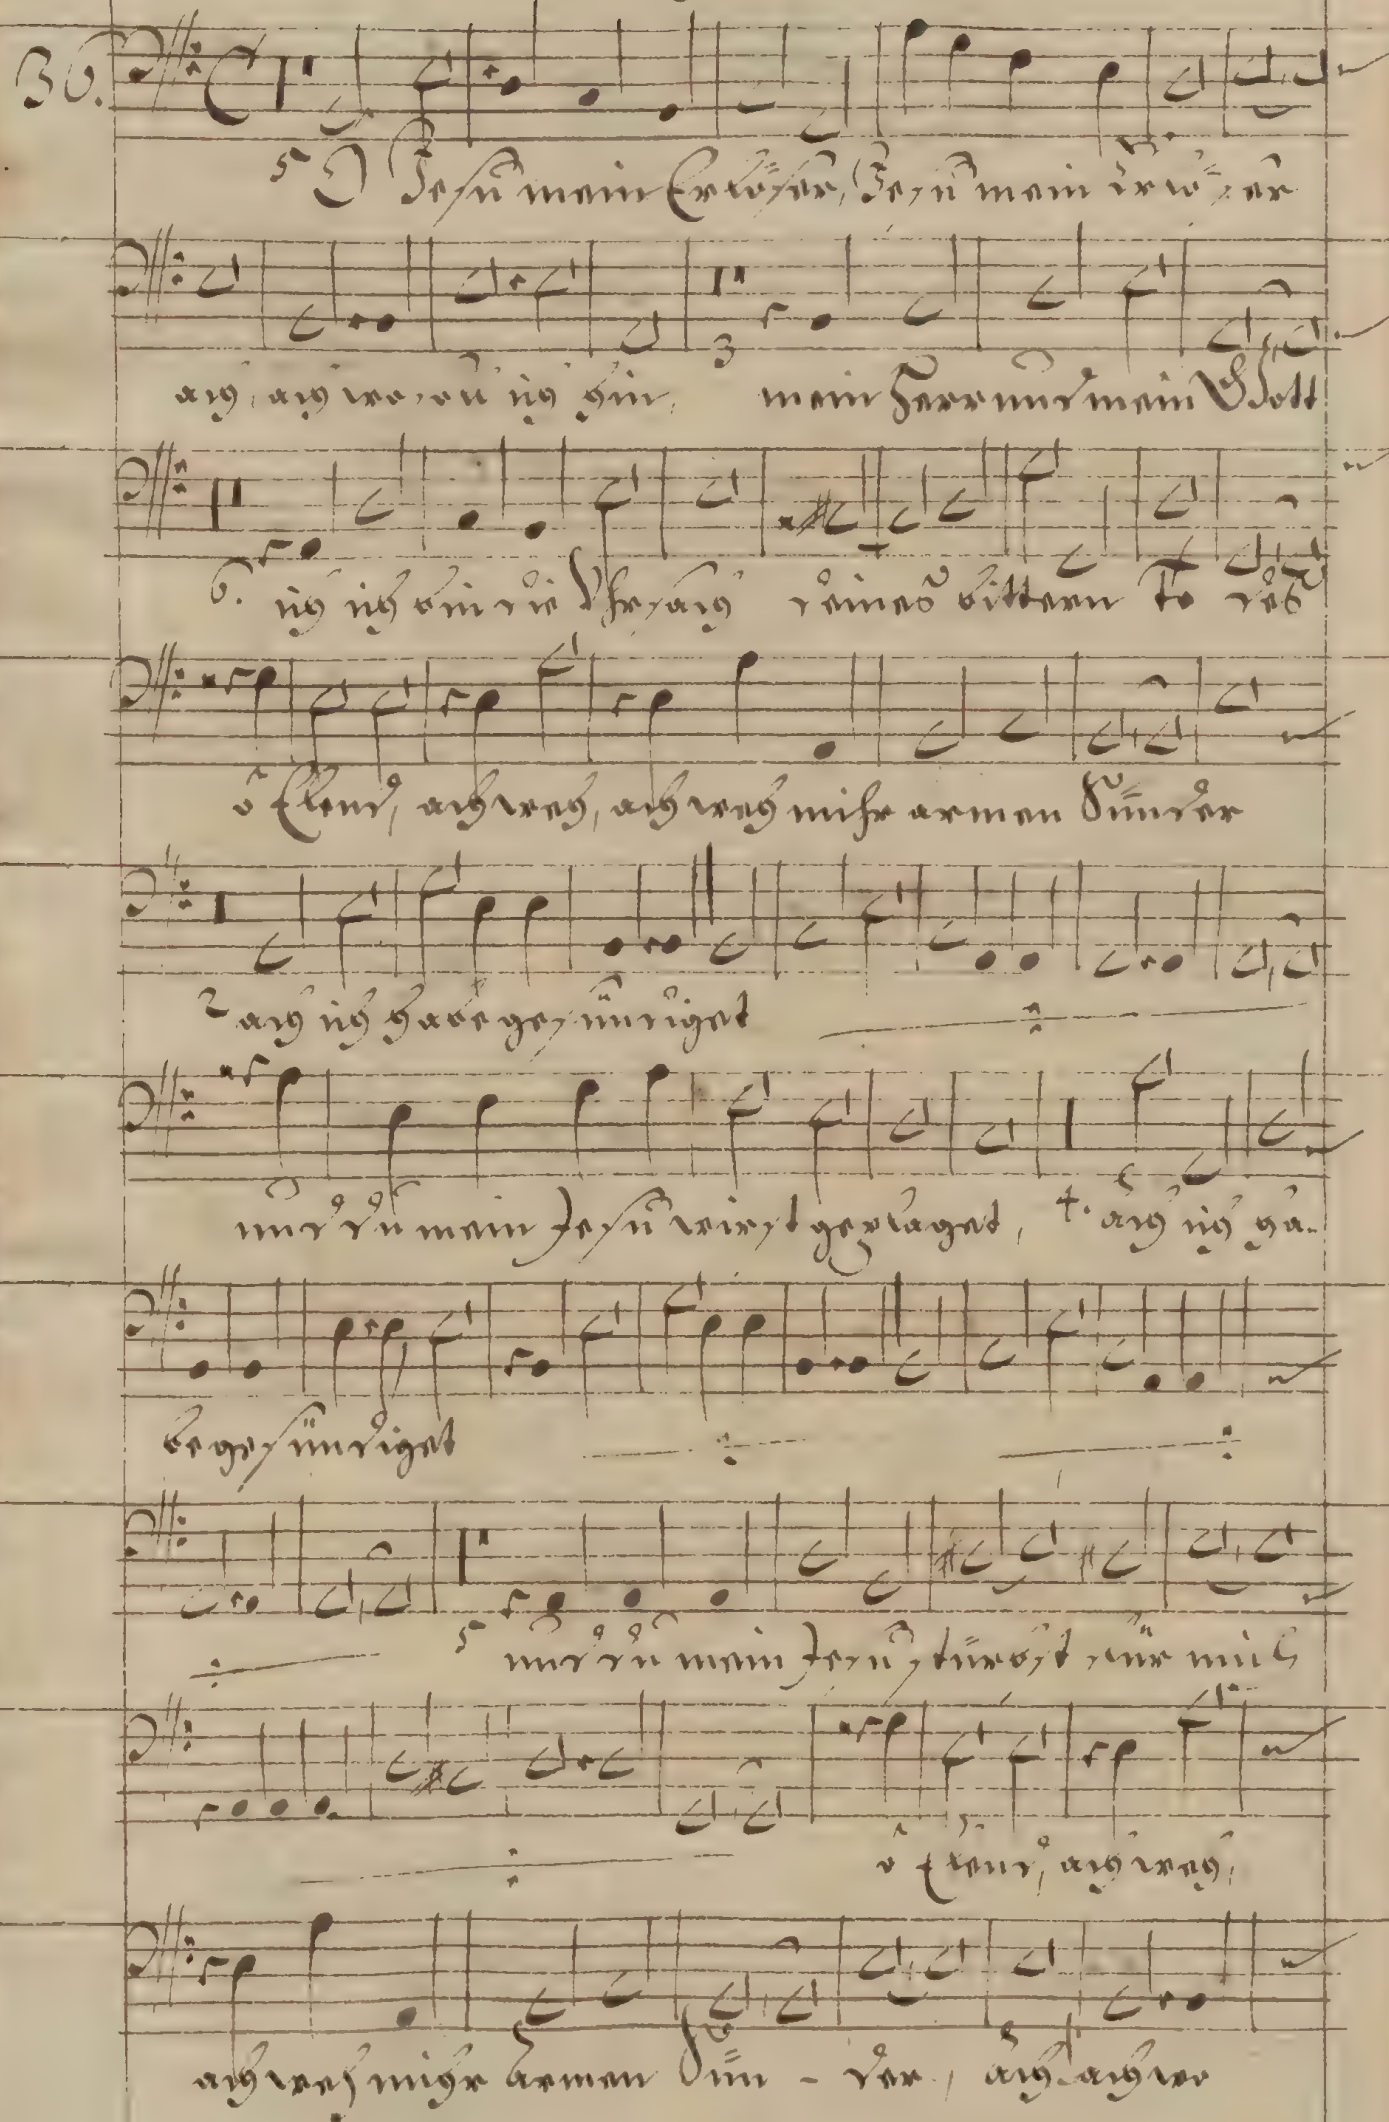 36.
5 O Jesu mein Erlöser, Jesu mein Erlö=ser
ach, ach wo sol ich hin, 3 mein Herr und mein Gott
6. ich ich bin die Uhrsach deines bittern To des
ô Elend, ach weh, ach weh mihr armen Sünder
2 ach ich habe gesündiget ⁒
und du mein Jesu wirst geplaget, 4. ach ich ha-
be gesündiget ⁒ ⁒
⁒ 5 und du mein Jesu stürbst für mich
⁒ ô Elend, ach weh,
ach weh mihr armen Sün - der, ach ach wo